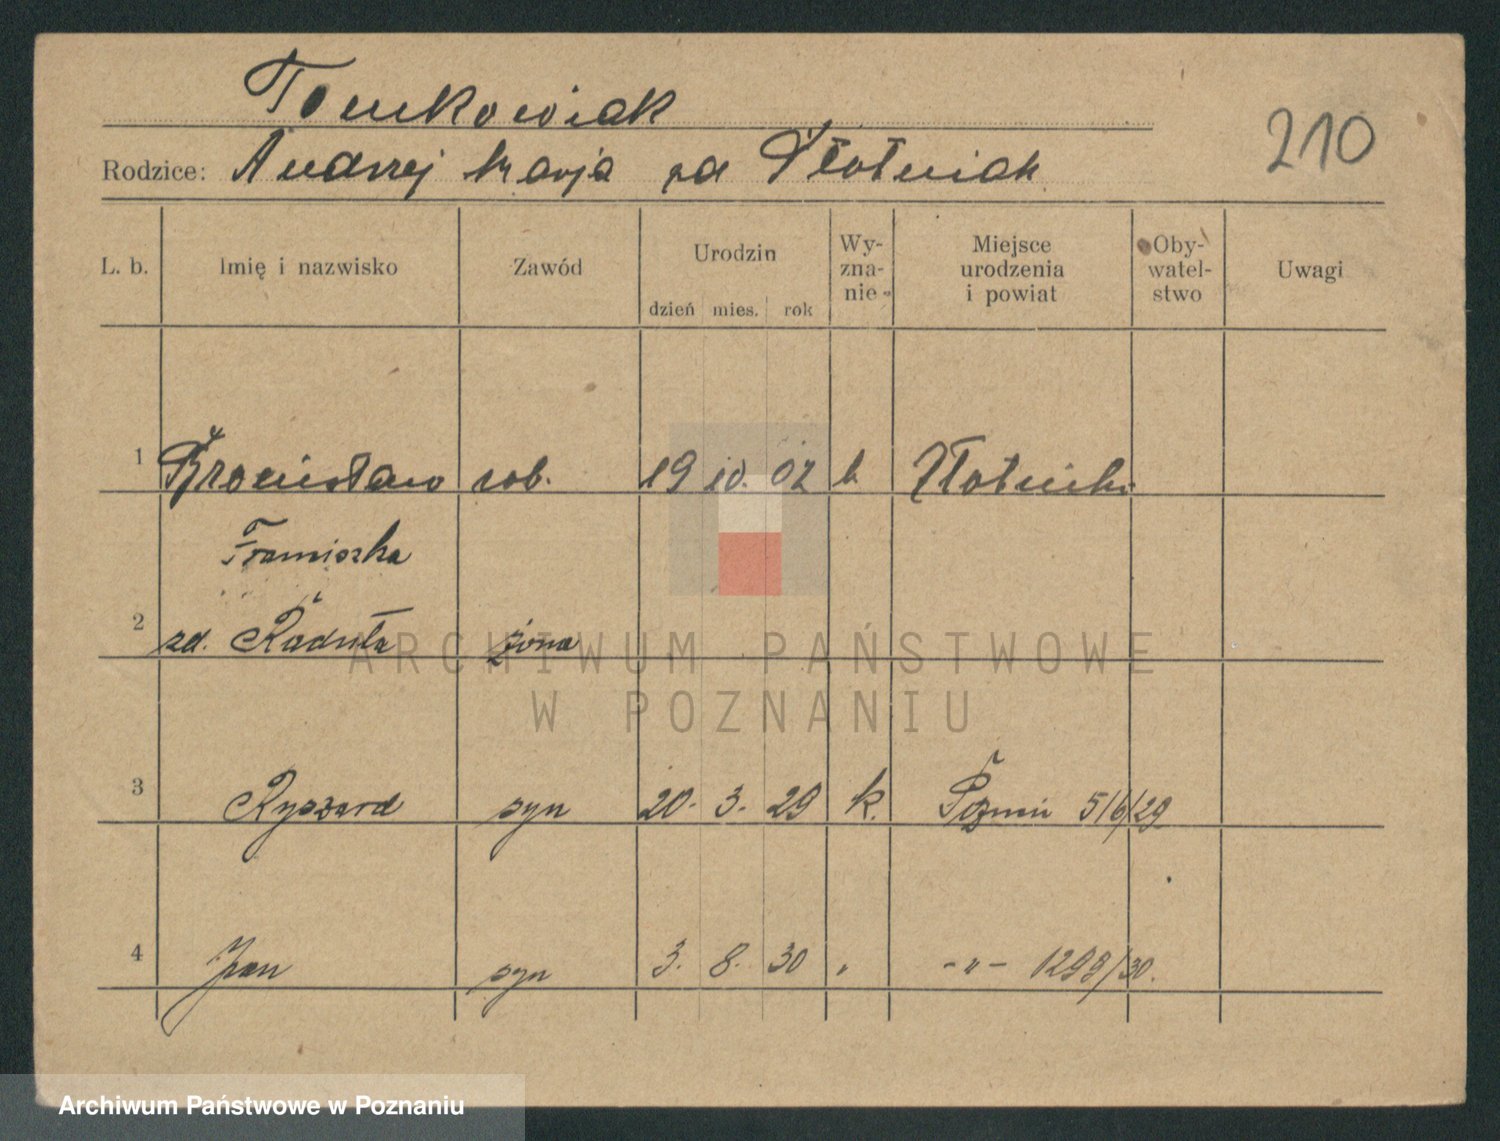 Tomkowiak
210
Rodzice: Andrzej Marja zd Płotniak
L. b. Imię i nazwisko Zawód Urodzin dzień mies. rok Wy-zna-nie Miejsce urodzenia i powiat Oby-watel-stwo Uwagi
1 Bronisław rob. 19 10. 02 k. Złotniki
Franciszka
2 zd. Raduła żona
3 Ryszard syn 20. 3. 29 k. Poznań 5/6/29
4 Jan syn 3. 8. 30 " -"- 1299/30.
ARCHIWUM PAŃSTWOWE
W POZNANIU
Archiwum Państwowe w Poznaniu